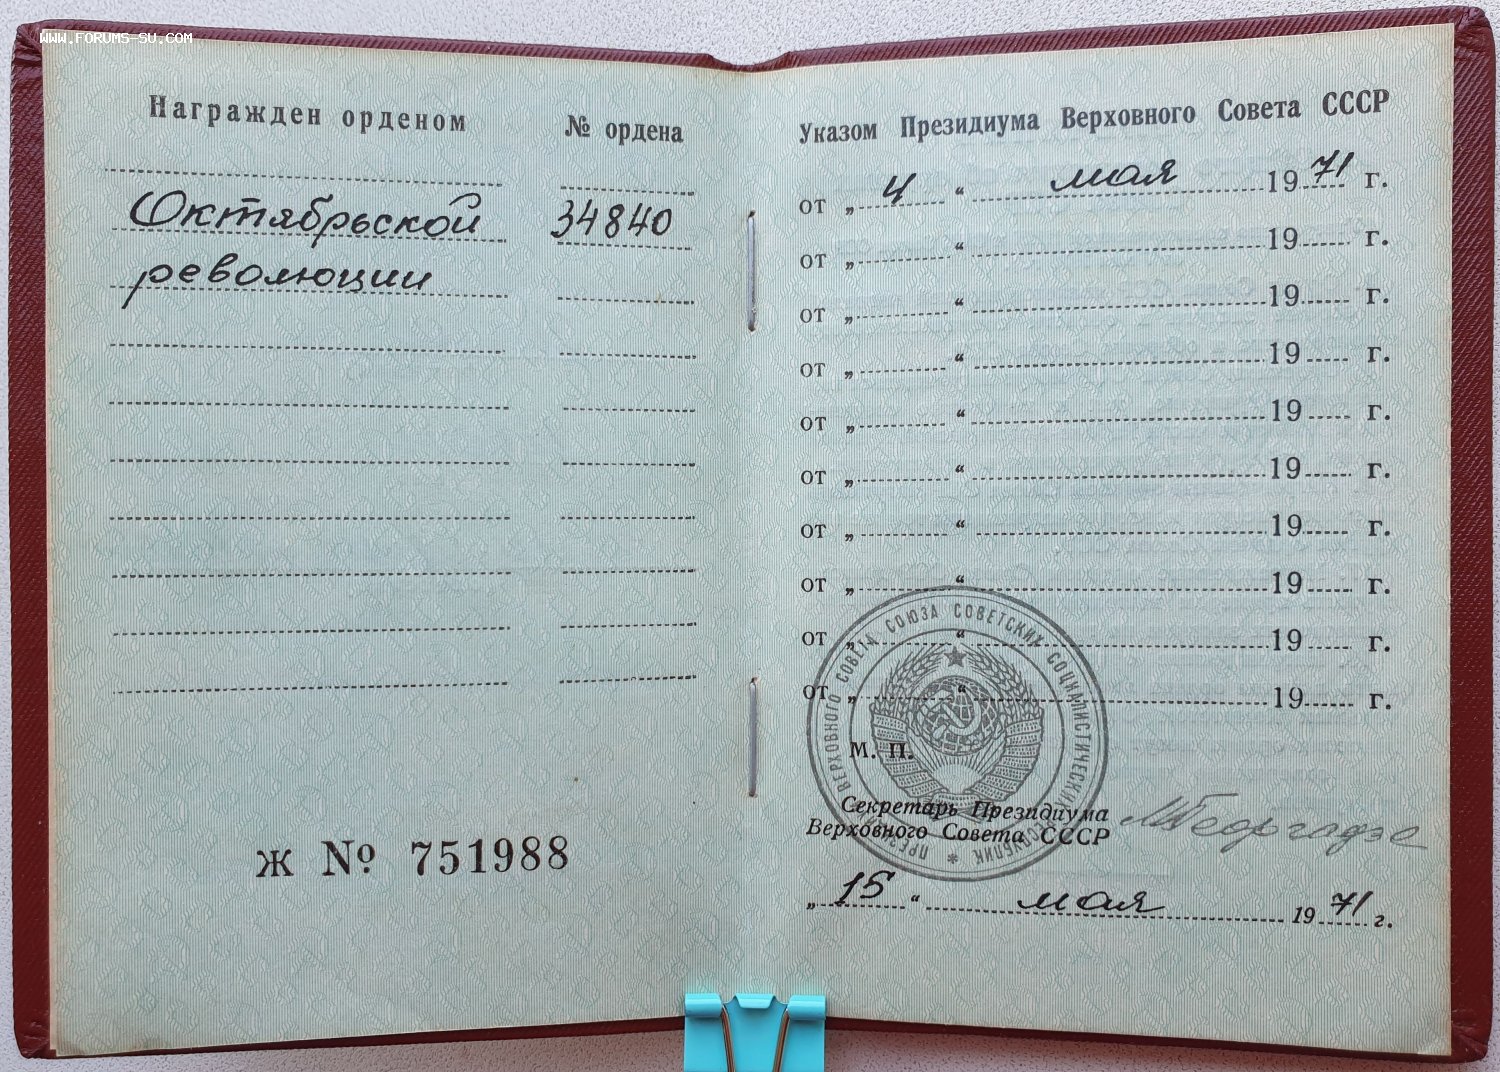 WWW.FORUMS-SU.COM
Награжден орденом № ордена
Октябрьской 34840
революции
Ж № 751988
Указом Президиума Верховного Совета СССР
от „ 4 “ мая 1971 г.
от „ “ 19 г.
от „ “ 19 г.
от „ “ 19 г.
от „ “ 19 г.
от „ “ 19 г.
от „ “ 19 г.
от „ “ 19 г.
от „ “ 19 г.
от „ “ 19 г.
ПРЕЗИДИУМ ВЕРХОВНОГО СОВЕТА СОЮЗА СОВЕТСКИХ СОЦИАЛИСТИЧЕСКИХ РЕСПУБЛИК
М. П.
Секретарь Президиума
Верховного Совета СССР МГеоргадзе
„ 15 “ мая 1971 г.